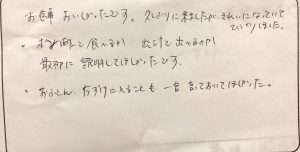 お食事 おいしかったです。久しぶりに来ましたが、きれいになっていて
びっくりしました。
・ で食べるか で出るのか
最初に説明してほしかったです。
・おふとん 片づけに入ることも 一言 言っておいてほしかった。